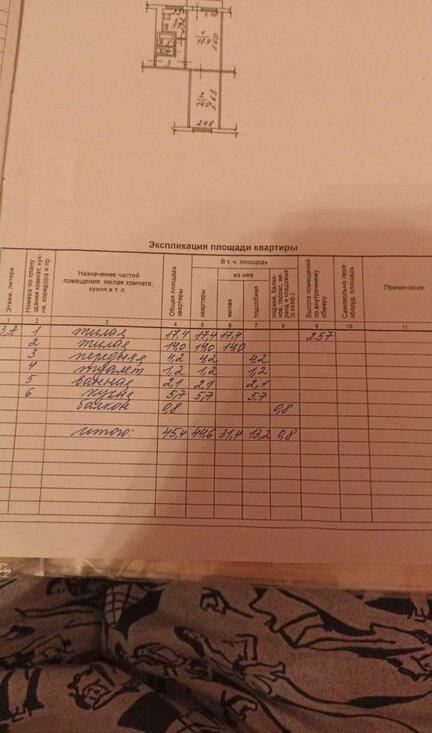 1
17.4
5.60
2
14,0
5.63
2.48
Экспликация площади квартиры
Этаж, литера
Номера по плану
Назначение частей помещения: жилая комната, кухня и т. п.
Общая площадь квартиры
В т. ч. площадь
квартиры
из нее
жилая
подсобная
Высота помещений по внутреннему обмеру
Самовольно переобоуд. площадь
Примечание
1 2 3 4 5 6 7 8 9 10 11
3 А 1 жилая 17,4 17,4 17,4 2.57
2 жилая 14,0 14,0 14,0
3 передняя 4,2 4,2 4,2
4 туалет 1,2 1,2 1,2
5 ванная 2,1 2,1 2,1
6 кухня 5,7 5,7 5,7
балкон 0,8 0,8
итого: 45,4 44,6 31,4 13,2 0,8